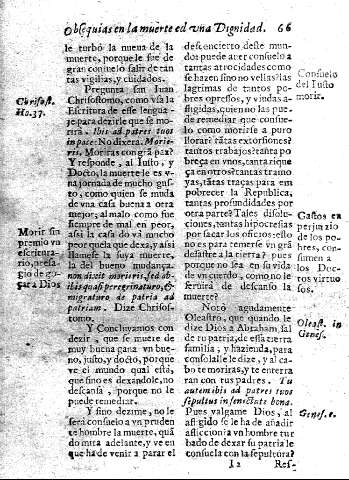 Obsequias en la muerte ed vna Dignidad. 66
le turbò la nueua de la
muerte, porque le fue de
gran consuelo salir de tan
tas vigilias, y cuidados.
Pregunta san Iuan
Chrisostomo, como vsa la
Escritura de este lengua-
je para dezirle que se mo-
rirà. Ibis ad patres tuos
in pace: No dixera. Morie-
ris. Moriras con grã paz?
Y responde, al Iusto, y
Docto, la muerte le es v-
na jornada de mucho gus-
to, como quien se muda
de vna casa buena a otra
mejor; al malo como fue
siempre de mal en peor,
assi la casa do và mucho
peor que la que dexa, y assi
llamese la suya muerte,
la del bueno mudança,
non dixit morieris, sed i-
bis quasi peregrinaturo, &
migraturo de patria ad
patriam. Dize Chrisos-
tomo.
Y Concluyamos con
dezir, que se muere de
muy buena gana vn bue-
no, justo, y docto, porque
ve el mundo qual està,
que sino es dexandole, no
descansa, porque no le
puede remediar.
Y sino dezime, no le
serà consuelo a vn pruden
te hombre la muerte, quã
do mira adelante, y ve en
que ha de venir a parar el
desconcierto deste mun-
do: puede auer consuelo a
tantas atrocidades como
se hazen sino no vellas? las
lagrimas de tantos po-
bres opressos, y viudas a-
fligidas, quien no las pue-
de remediar que consue-
lo como morirse a puro
llorar? tãtas extorsiones?
tantos trabajos? tanta po
breça en vnos, tanta rique
ça en otros? tantas tramo
yas, tãtas traças para em
pobrecer la Republica,
tantas profundidades por
otra parte? Tales disolu-
ciones, tantas hipocresias
por sacar los oficios: esto
no es para temerse vn grã
desastre a la tierra? pues
porque no sea en su vida
de vn cuerdo, como no le
seruirà de descanso la
muerte?
Notò agudamente
Oleastro, que quando le
dize Dios a Abraham, sal
de tu patria, de essa tierra
familia, y hazienda, para
consolalle le dize, y al ca-
bo te moriras, y te enterra
ran con tus padres. Tu
autem ibis ad patres tuos
sepultus in senectute bona.
Pues valgame Dios, al
afligido se le ha de añadir
afliccion a vn hombre tur
bado de dexar su patria le
consuela con la sepultura?
I2 Res-
Chrisost.
Ho. 37.
Morir sin
premio vn
escritura-
rio, presa-
gio de go-
zar a Dios
Consuelo
del Iusto
morir.
Gastos en
perjuzio
de los po-
bres, con-
sumen a
los Doc-
tos virtuo
sos.
Oleast. in
Genes.
Genes. c.